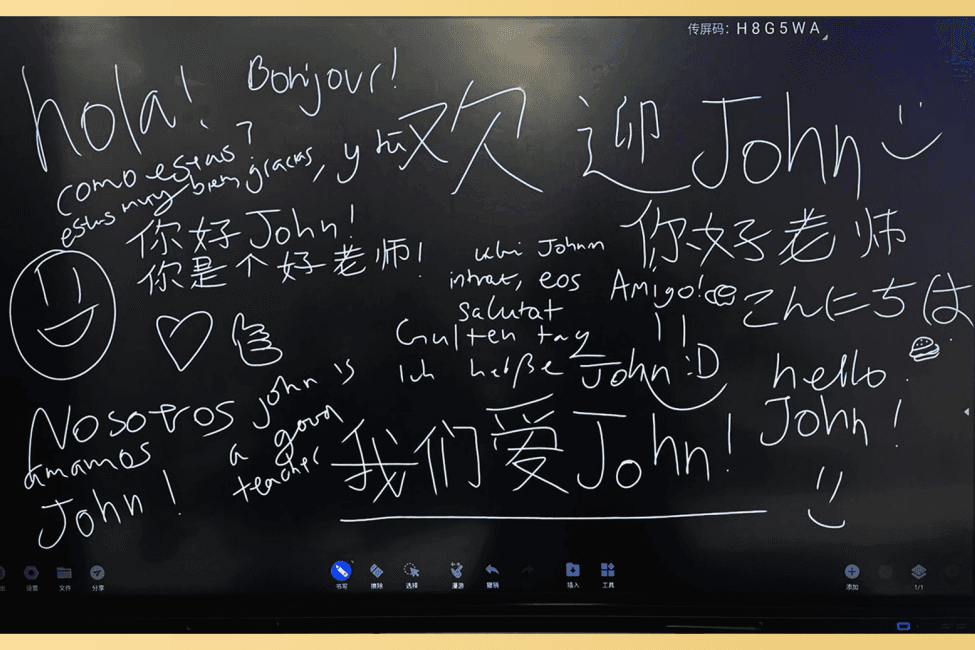 传屏码: H8G5WA
hola! Bonjour!
欢迎 John
como estas?
estas muy bien gracias, y tu
你好 John!
你是个好老师!
你好老师
ubi Johnn
intrat, eos
salutat
Amigo!
こんにちは
Gulten tag
Ich heiße John :D
hello
John!
Nosotros
amamos
John!
john is
a good
teacher
我们爱John!
设置 文件 分享 书写 擦除 选择 漫游 撤销 插入 工具 添加 1/1